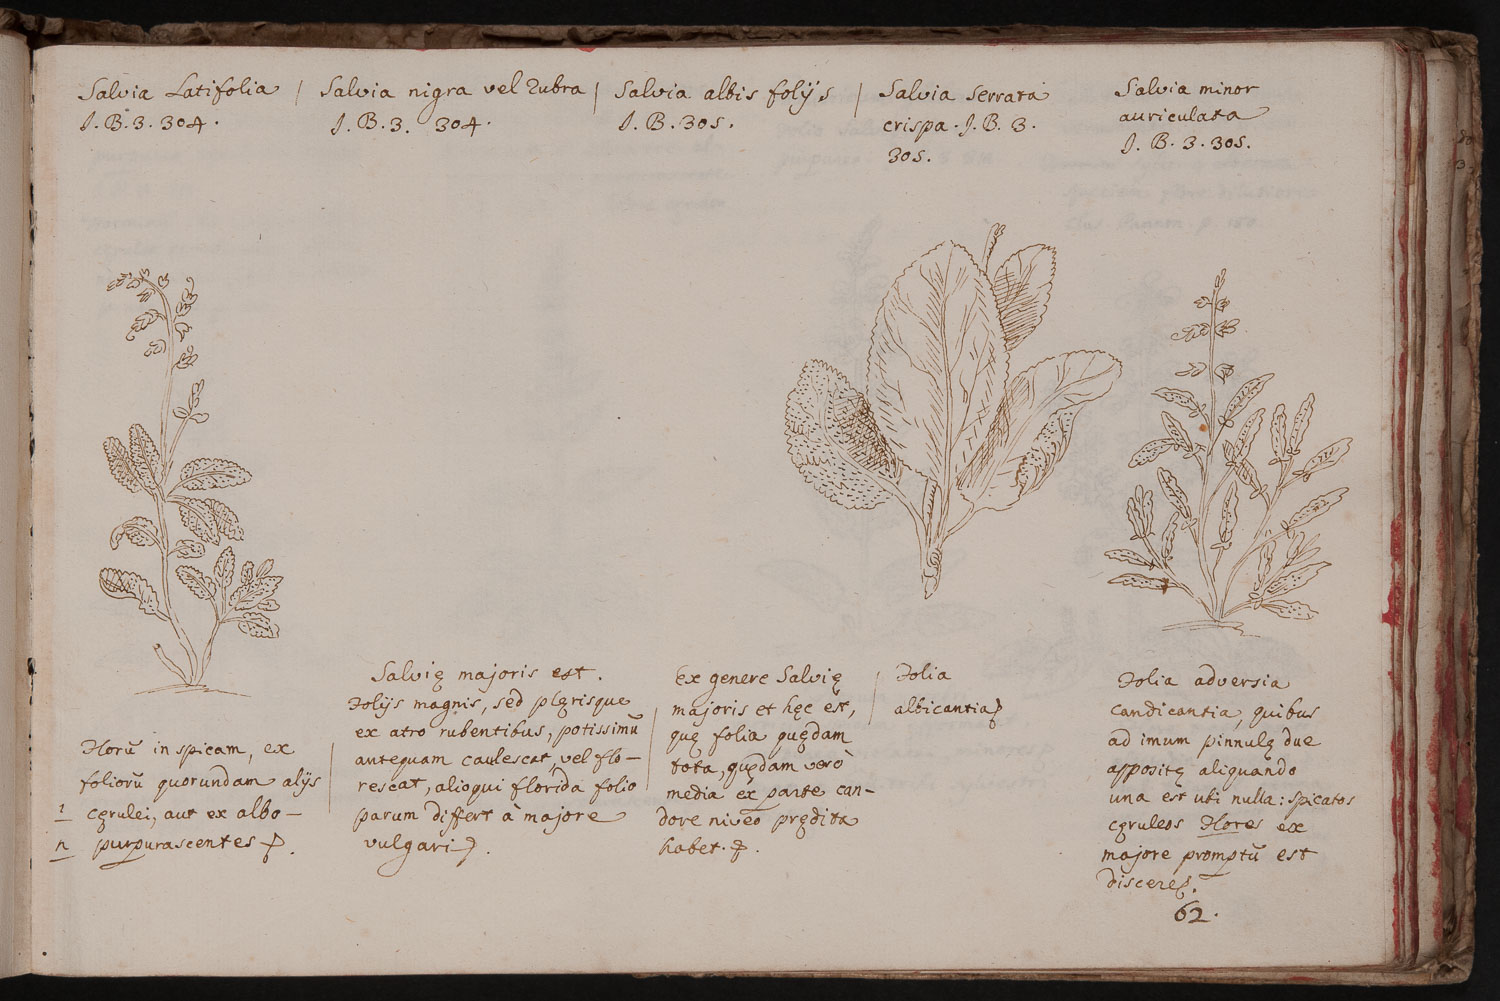 Salvia Latifolia
J. B. 3. 304.
Salvia nigra vel rubra
J. B. 3. 304.
Salvia albis folijs
J. B. 305.
Salvia serrata
crispa. J. B. 3.
305.
Salvia minor
auriculata
J. B. 3. 305.
Florũ in spicam, ex
foliorũ quorundam alijs
cęrulei, aut ex albo-
purpurascentes
Salvię majoris est.
Folijs magnis, sed plęrisque
ex atro rubentibus, potissimũ
antequam caulescat, vel flo-
rescat, alioqui florida folio
parum differt à majore
vulgari
Ex genere Salvię
majoris et hęc est,
quę folia quędam
tota, quędam verò
media ex parte can-
dore niveo prędita
habet.
Folia
albicantia
Folia adversia
candicantia, quibus
ad imum pinnulę duę
appositę aliquando
una est ubi nulla: spicatos
cęruleos Flores ex
majore promptũ est
discere.
62.